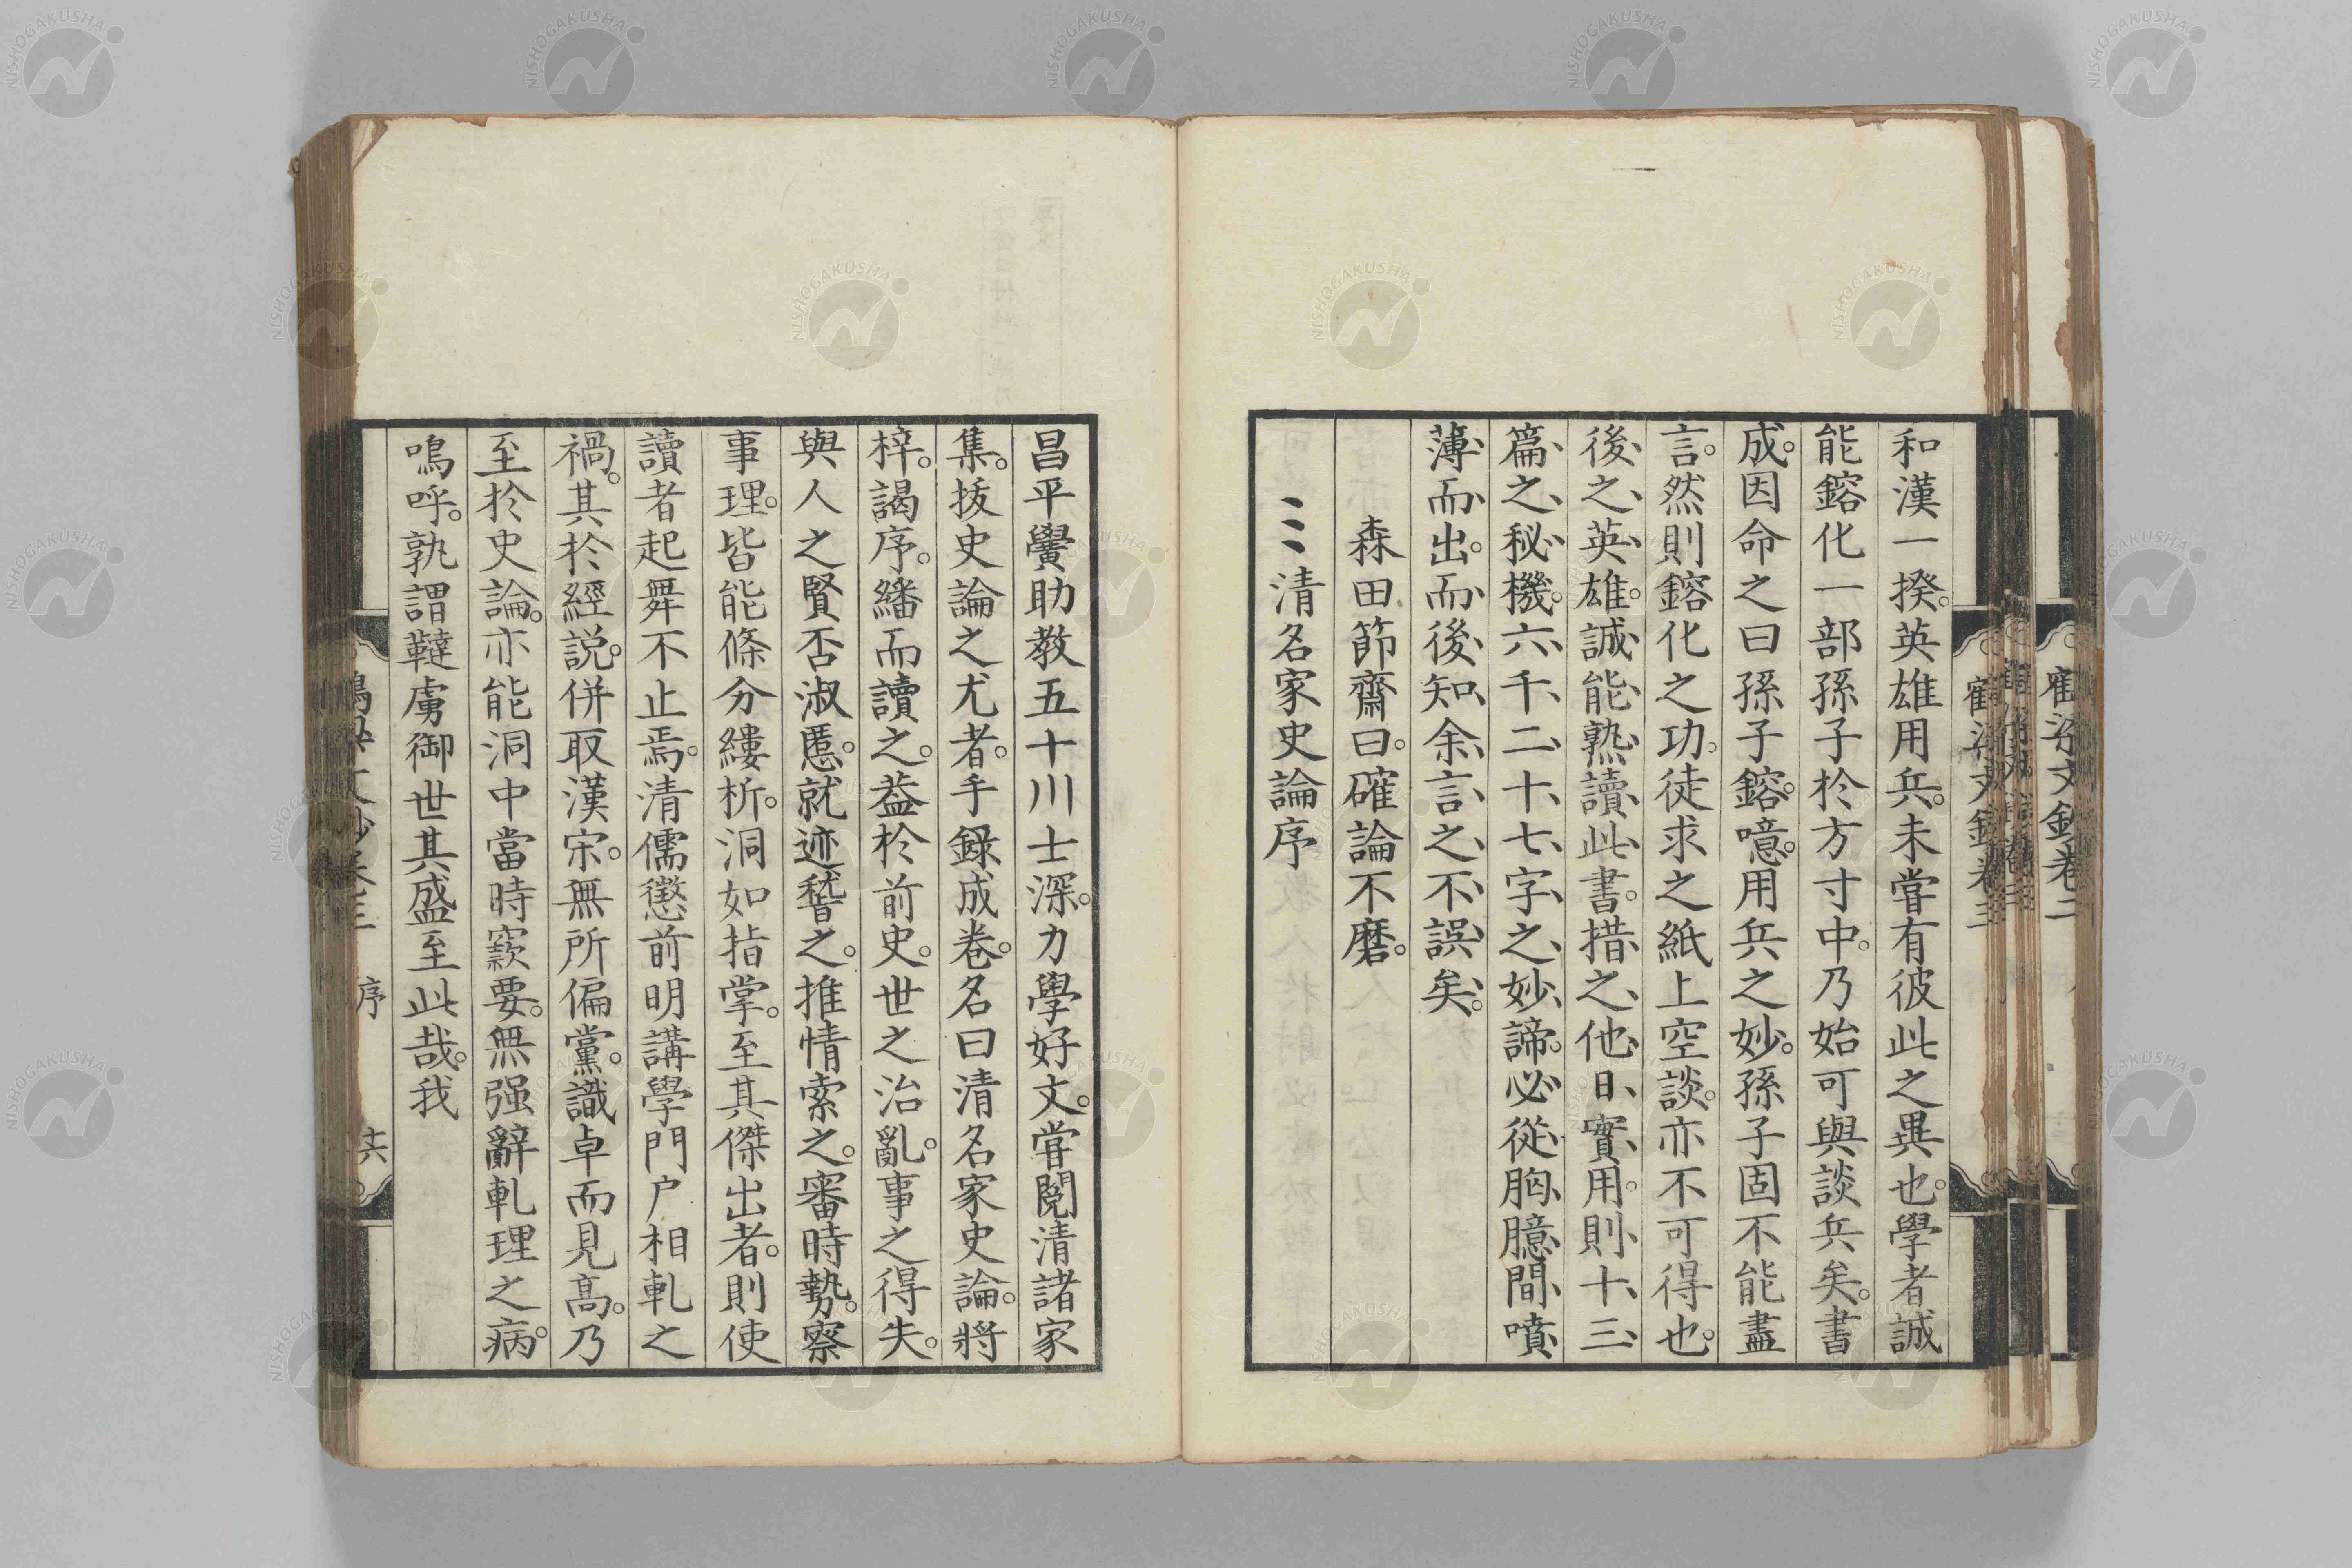 和漢一揆。英雄用兵。未嘗有彼此之異也。學者誠
能鎔化一部孫子於方寸中。乃始可與談兵矣。書
成。因命之曰孫子鎔。噫。用兵之妙。孫子固不能盡
言。然則鎔化之功。徒求之紙上空談。亦不可得也。
後、之、英、雄。誠、能、熟、讀、此、書。措、之、他、日、實、用。則、十、三、
篇、之、秘、機。六、千、二、十、七、字、之、妙、諦。必、從、胸、臆、間、噴、
薄、而、出。而、後、知、余、言、之、不、誤、矣。
森田節齋曰。確論不磨。
清名家史論序
昌平黌助教五十川士深。力學好文。嘗閱清諸家
集。拔史論之尤者。手錄成卷。名曰清名家史論。將
梓。謁序。繙而讀之。蓋於前史。世之治亂。事之得失。
與人之賢否淑慝。就迹誓之。推情索之。審時勢。察
事理。皆能條分縷析。洞如指掌。至其傑出者。則使
讀者起舞不止焉。清儒懲前明講學門戶相軋之
禍。其於經説。併取漢宋。無所偏黨。識卓而見高。乃
至於史論。亦能洞中當時窾要。無强辭軋理之病。
鳴呼。孰謂韃虜御世其盛至此哉。我
鶴梁文鈔卷三
序
共
鶴梁文鈔卷三
鶴梁文鈔卷二
NISHOGAKUSHA